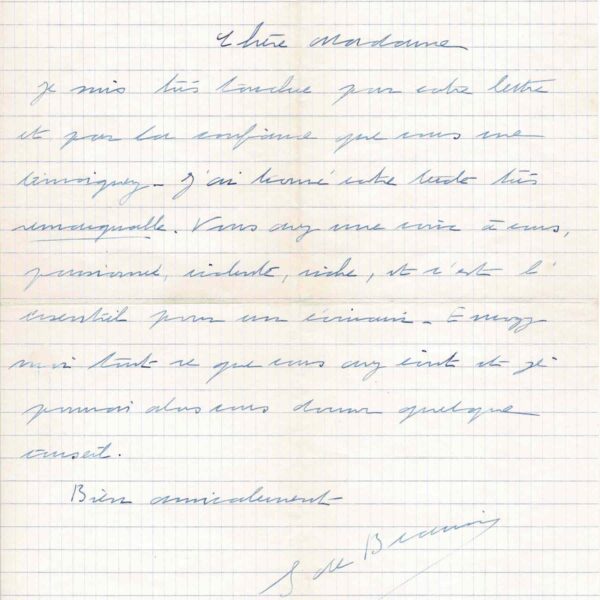 Chère Madame
Je suis très touchée par votre lettre
et par la confiance que vous me
témoignez - J'ai trouvé votre texte très
remarquable. Vous avez une voix à vous,
passionnée, violente, riche, et c'est l'
essentiel pour un écrivain - Envoyez
moi tout ce que vous avez écrit et je
pourrai alors vous donner quelque
conseil.
Bien amicalement
S de Beauvoir